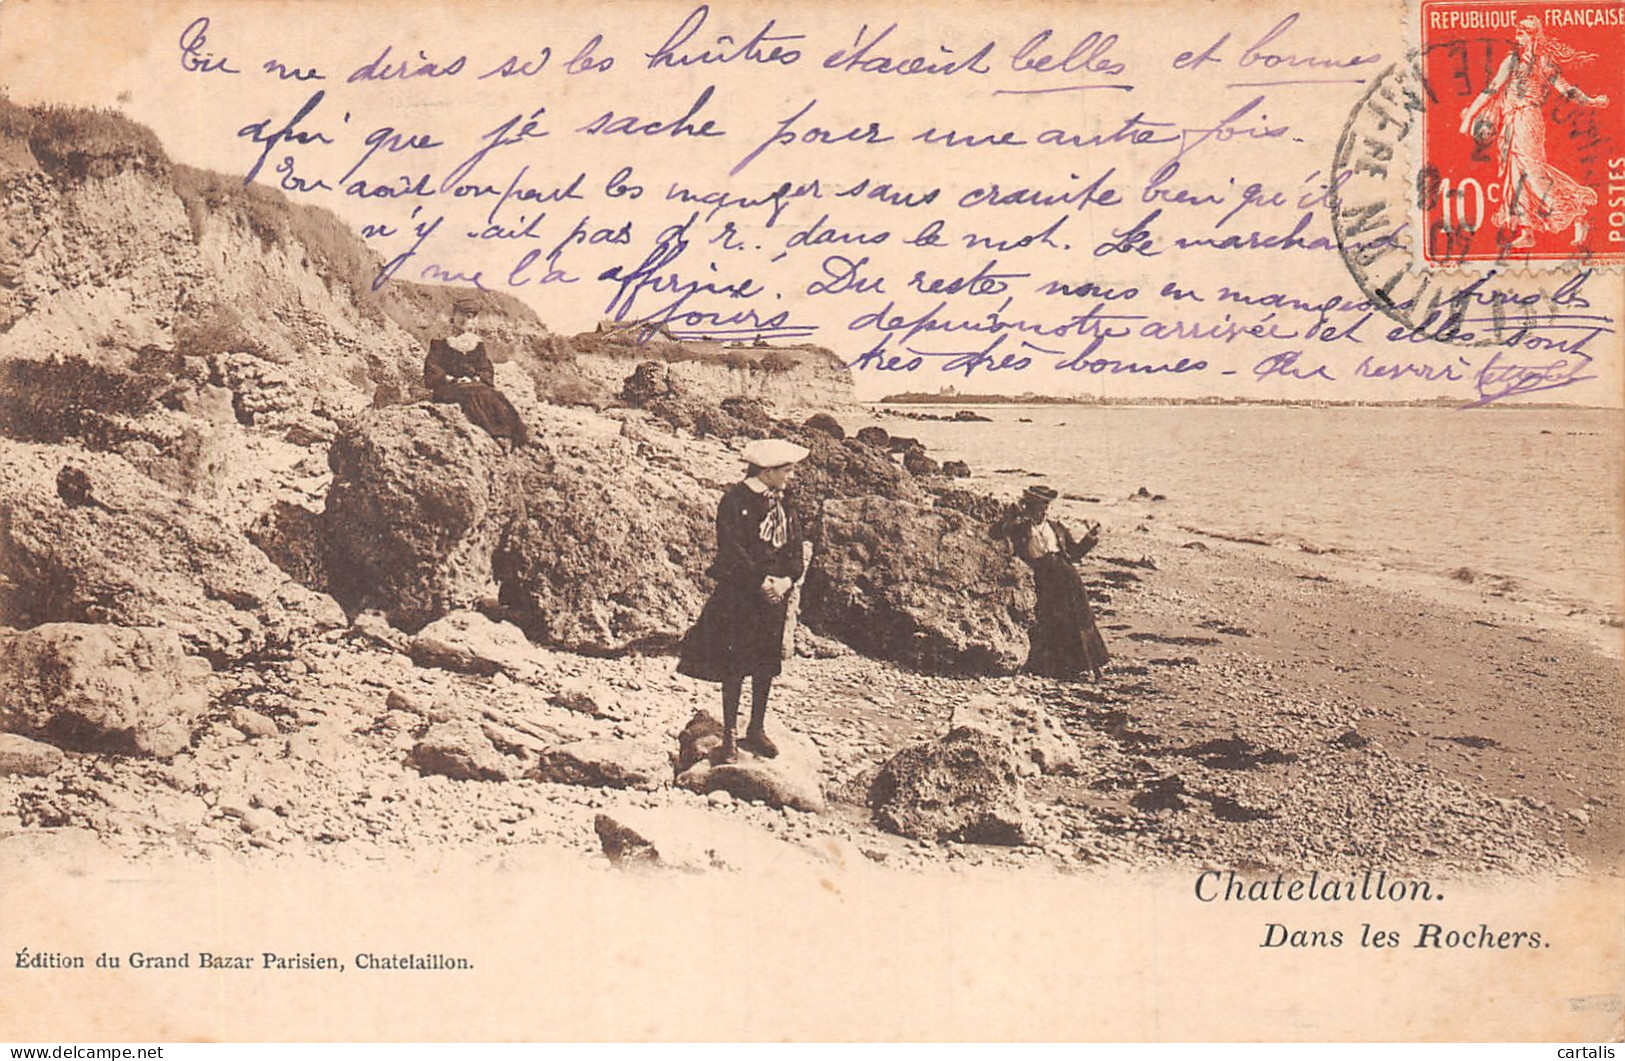 Tu me diras si les huîtres étaient belles et bonnes
afin que je sache pour une autre fois.
En août on peut les manger sans crainte bien qu'il
n'y ait pas d'r.. dans le mot. Le marchand
me l'a affirmé. Du reste, nous en mangeons tous les
jours depuis notre arrivée et elles sont
très très bonnes - Au revoir
REPUBLIQUE FRANÇAISE
10c
POSTES
CHARENTE INFRE
Chatelaillon.
Dans les Rochers.
Édition du Grand Bazar Parisien, Chatelaillon.
cartalis